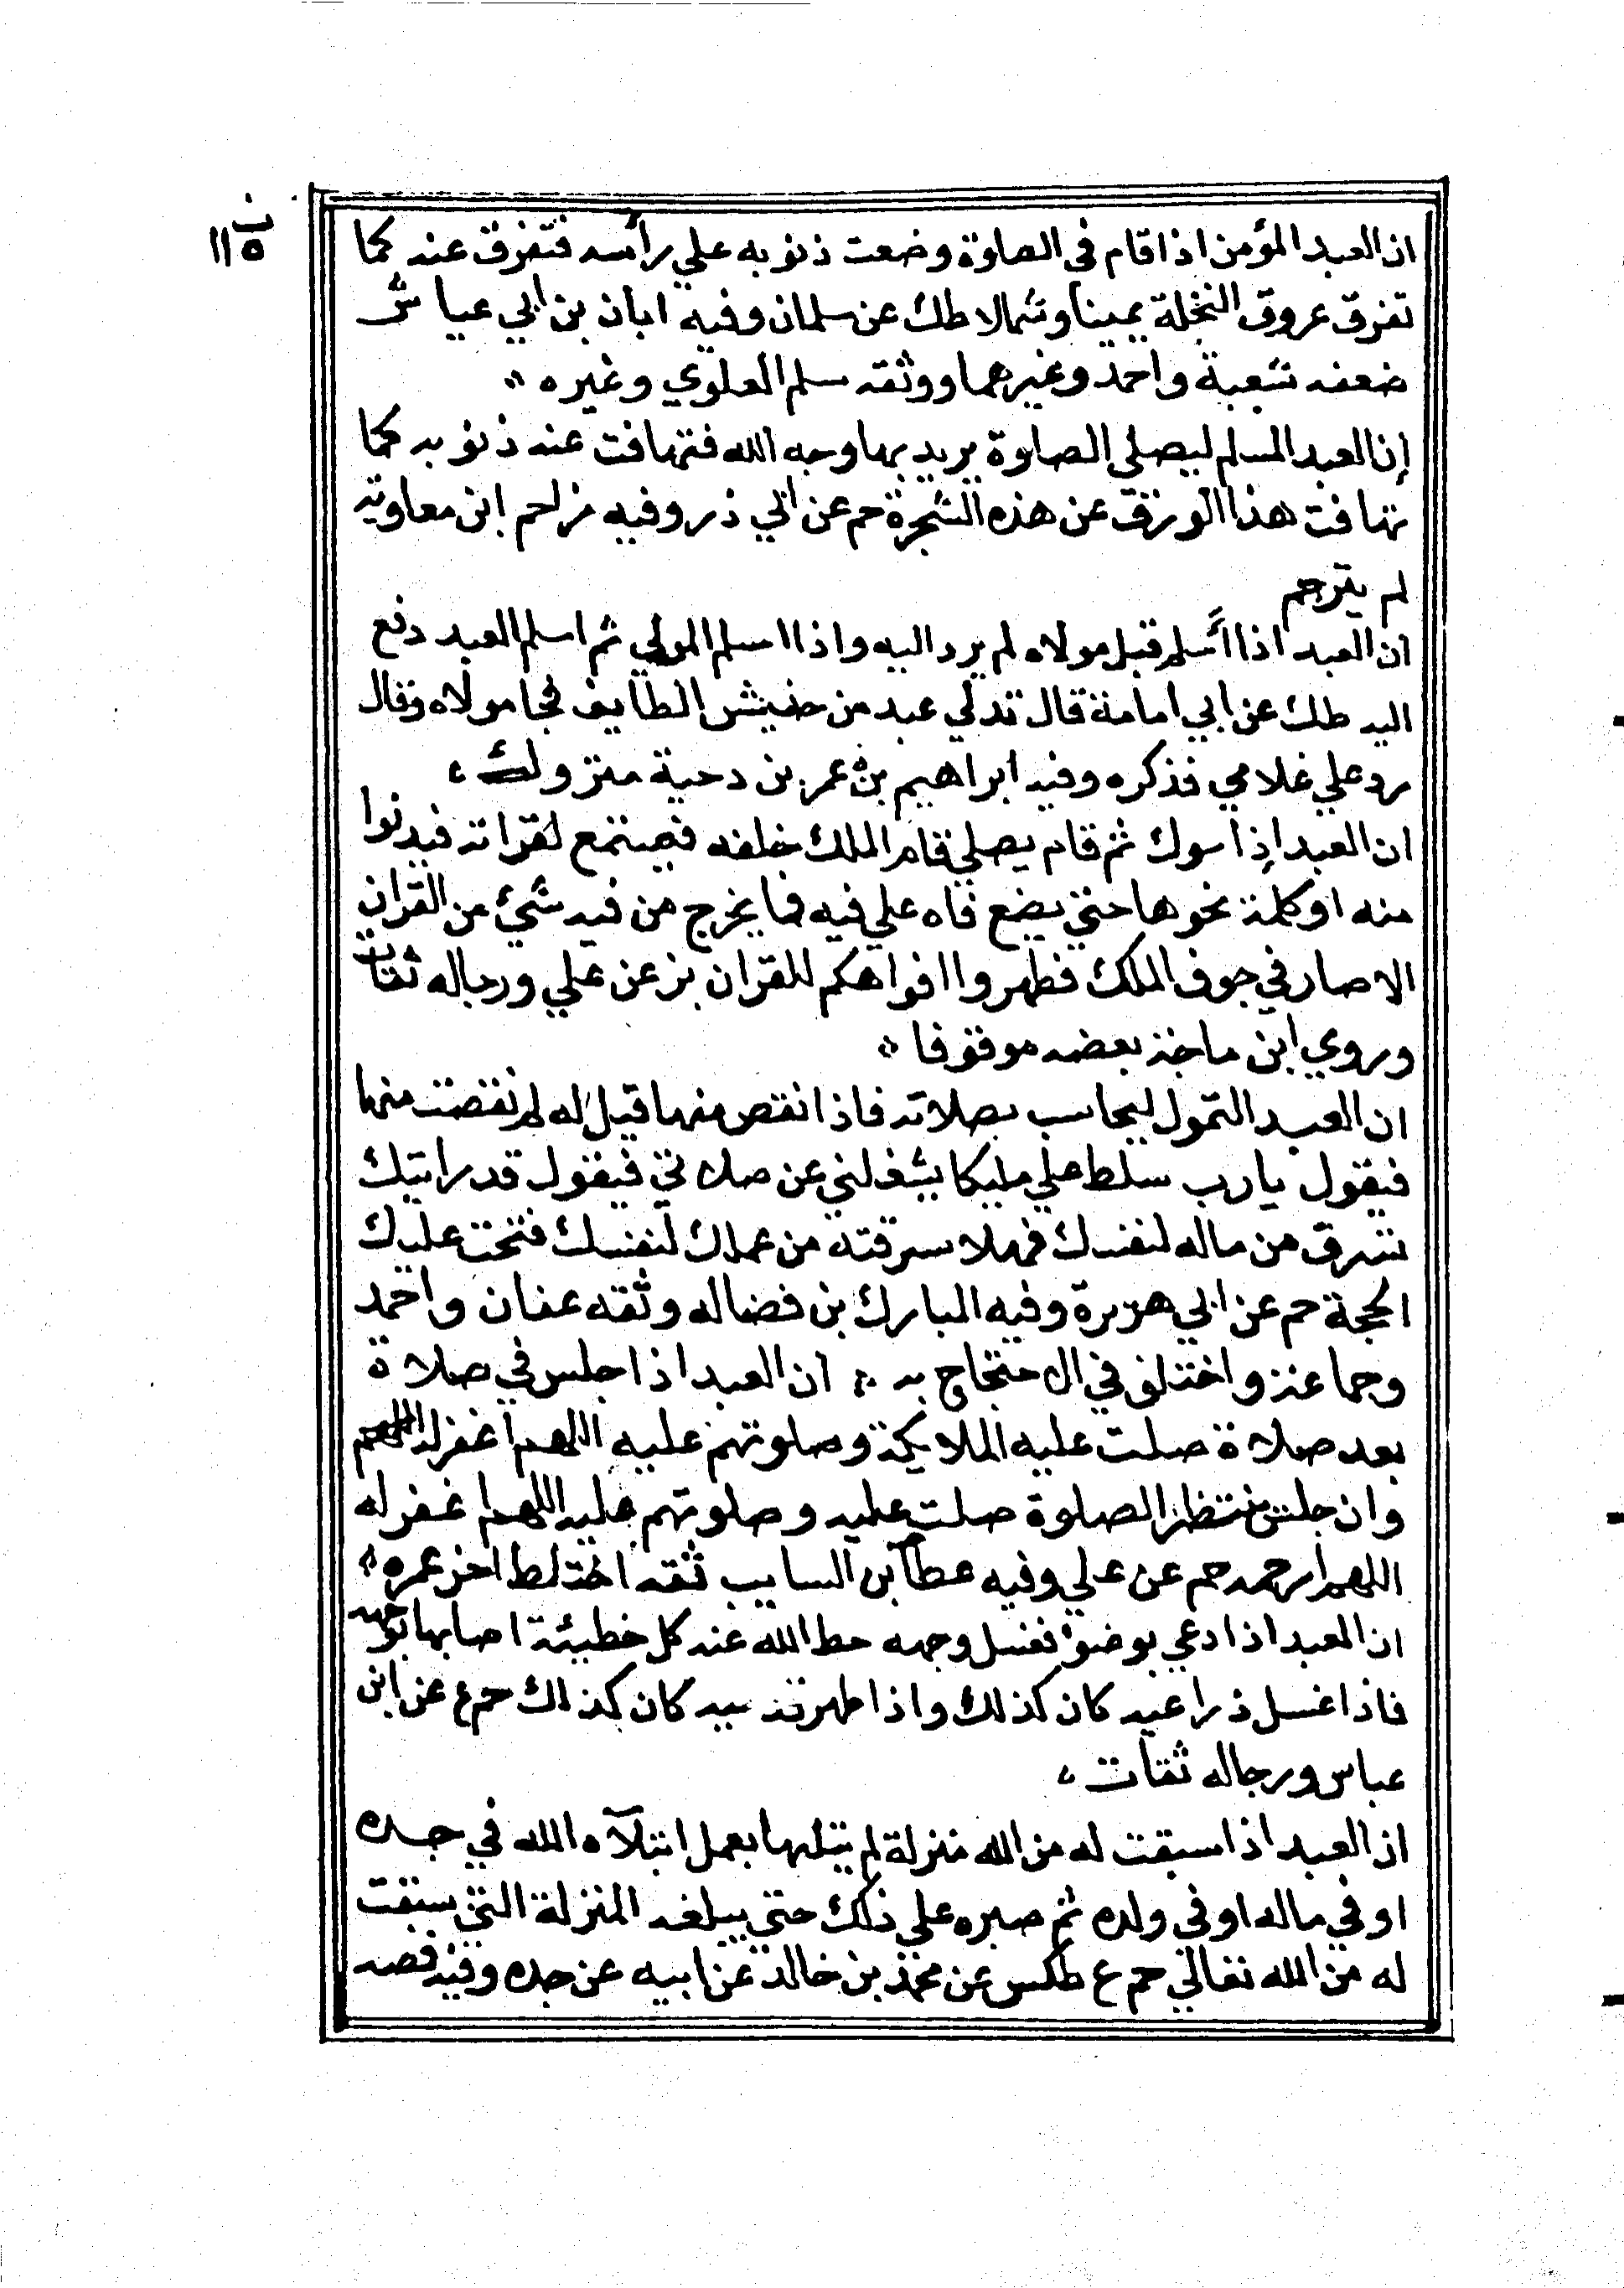 ١١٥
ان العبد المؤمن اذا قام في الصلوة وضعت ذنوبه علي رأسه فتفرق عنه كما
تفرق عروق النخلة يمينا وشمالا طك عن سلمان وفيه ابان بن ابي عياش
ضعفه شعبة واحمد وغيرهما ووثقه سلم العلوي وغيره
إن العبد المسلم ليصلي الصلوة يريد بها وجه الله فتهافت عنه ذنوبه كما
تهافت هذا الورق عن هذه الشجرة حم عن ابي ذر وفيه مزاحم ابن معاوية
لم يترجم
ان العبد اذا أسلم قبل مولاه لم يرد اليه واذا اسلم المولي ثم اسلم العبد دفع
اليه طك عن ابي امامة قال تدلي عبد من الطايف فجا مولاه وقال
رد علي غلامي فذكره وفيه ابراهيم بن عمر بن دحية متروك
ان العبد إذا سوك ثم قام يصلي قام الملك خلفه فيستمع لقراته فيدنوا
منه او كلمة نحوها حتي يضع فاه علي فيه فما يخرج من فيه شئ من القران
الا صار في جوف الملك فطهروا افواهكم للقران بز عن علي ورجاله ثقات
وروي ابن ماجة بعضه موقوفا
ان العبد ليحاسب بصلاته فاذا انقص منها قيل له لم نقصت منها
فيقول يارب سلط علي مليكا يشغلني عن صلاتي فيقول قد رايتك
تسرق من ماله لنفسك فهلا سرقته من عملك لنفسك فتحت عليك
الحجة حم عن ابي هريرة وفيه المبارك بن فضاله وثقه عفان واحمد
وجماعة واختلف في الاحتجاج به ان العبد اذا جلس في صلاة
بعد صلاة صلت عليه الملايكة وصلوتهم عليه اللهم اغفر له اللهم
وان جلس ينتظر الصلوة صلت عليه وصلوتهم عليه اللهم اغفر له
اللهم ارحمه حم عن علي وفيه عطآ بن السايب ثقه اختلط اخر عمره
ان العبد اذا دعي بوضوء فغسل وجهه حط الله عنه كل خطيئة اصابها بوجهه
فاذا غسل ذراعيه كان كذلك واذا كان كذلك حم ع عن ابن
عباس ورجاله ثقات
ان العبد اذا سبقت له من الله منزلة لم يبلها بعمل ابتلآه الله في جسده
او في ماله او في ولده ثم صبره علي ذلك حتي يبلغه المنزلة التي سبقت
له من الله تعالي حم ع طكس عن محمد بن خالد عن ابيه عن جده وفيه قصه